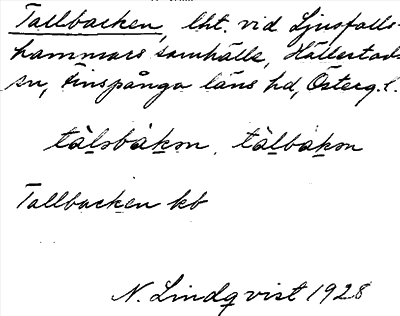 Tallbacken, lht. vid Ljusfalls-
hammars samhälle, Hällestads
sn, Finspånga läns hd, Österg. l.
tàlsbàkən, tàlbàkən
Tallbacken kb
N. Lindqvist 1928